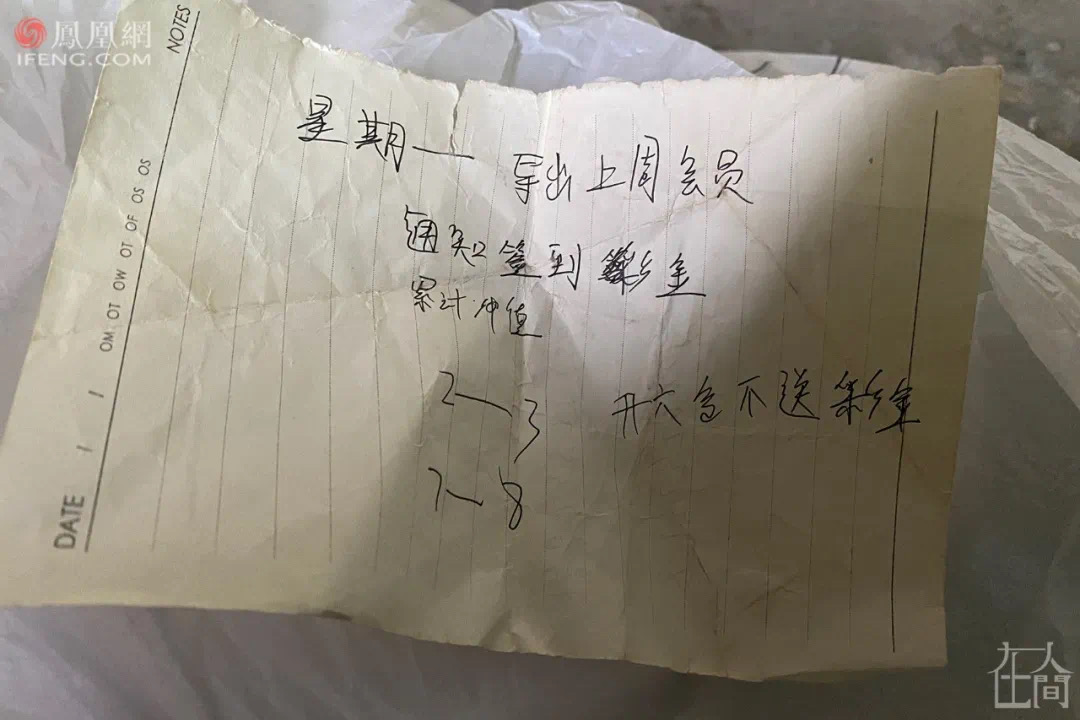 鳳凰網
IFENG.COM
NOTES
星期一 导出上周会员
通知签到彩金
累计冲值
2—3 开六合不送彩金
7—8
DATE / /
MO TO WO TO FO SO SO
在人間